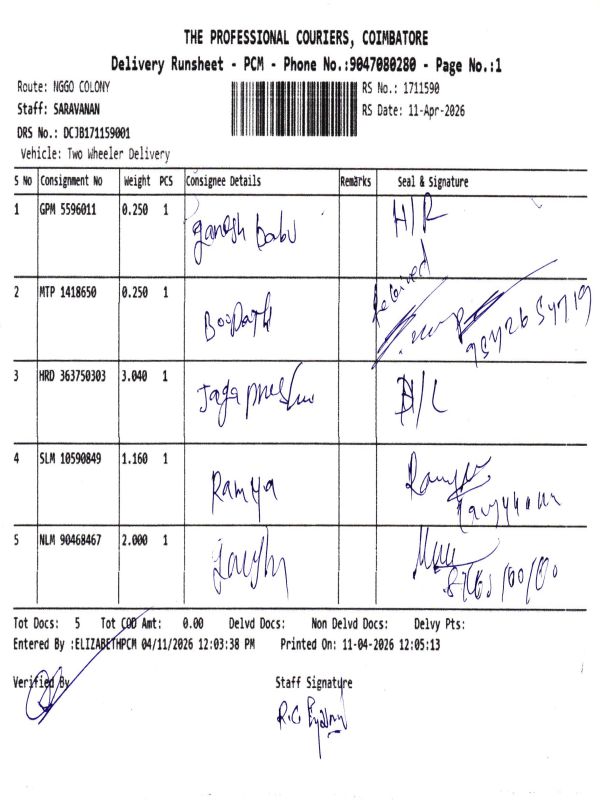 THE PROFESSIONAL COURIERS, COIMBATORE
Delivery Runsheet - PCM - Phone No.:9047080280 - Page No.:1
Route: NGGO COLONY
RS No.: 1711590
Staff: SARAVANAN
RS Date: 11-Apr-2026
DRS No.: DCJB171159001
Vehicle: Two Wheeler Delivery
S No Consignment No Weight PCS Consignee Details Remarks Seal & Signature
1 GPM 5596011 0.250 1 Ganesh Babu H/R
2 MTP 1418650 0.250 1 Received
3 HRD 363750303 3.040 1
4 SLM 10590849 1.160 1 Ramya
5 NLM 90468467 2.000 1
Tot Docs: 5 Tot COD Amt: 0.00 Delvd Docs: Non Delvd Docs: Delvy Pts:
Entered By :ELIZABETHPCM 04/11/2026 12:03:38 PM Printed On: 11-04-2026 12:05:13
Verified By Staff Signature